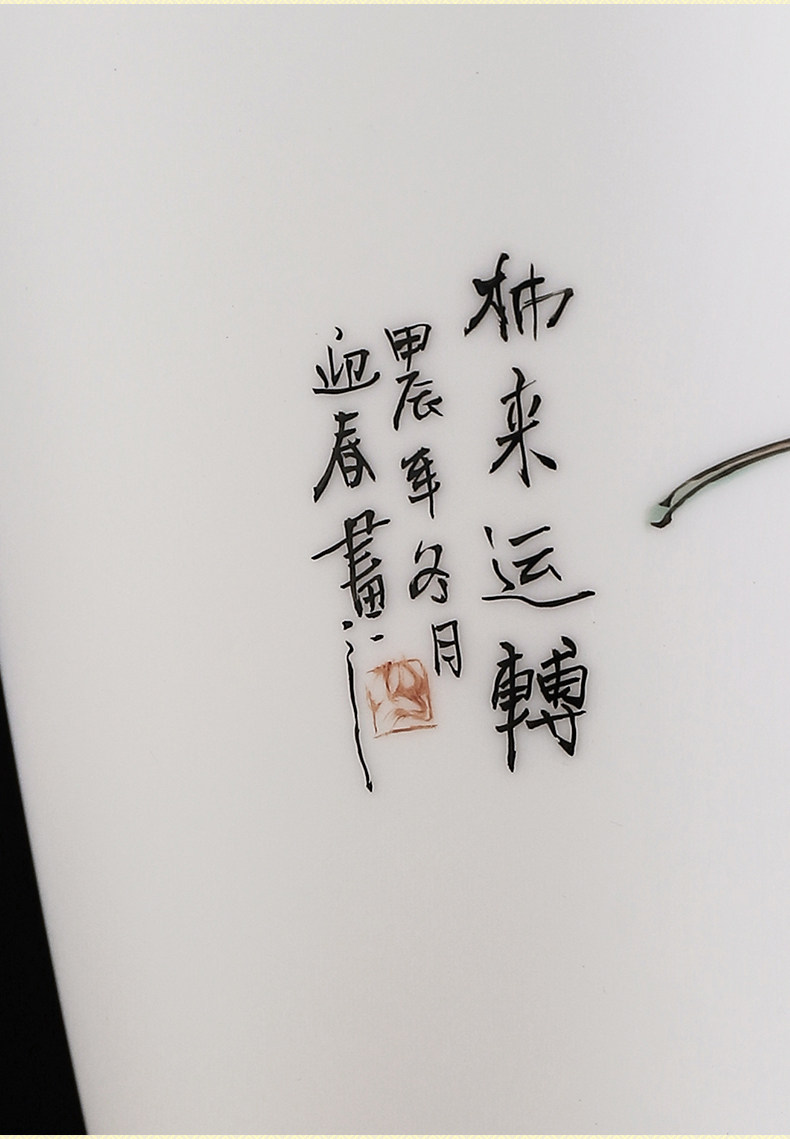 柿来运轉
甲辰年冬月
迎春畫